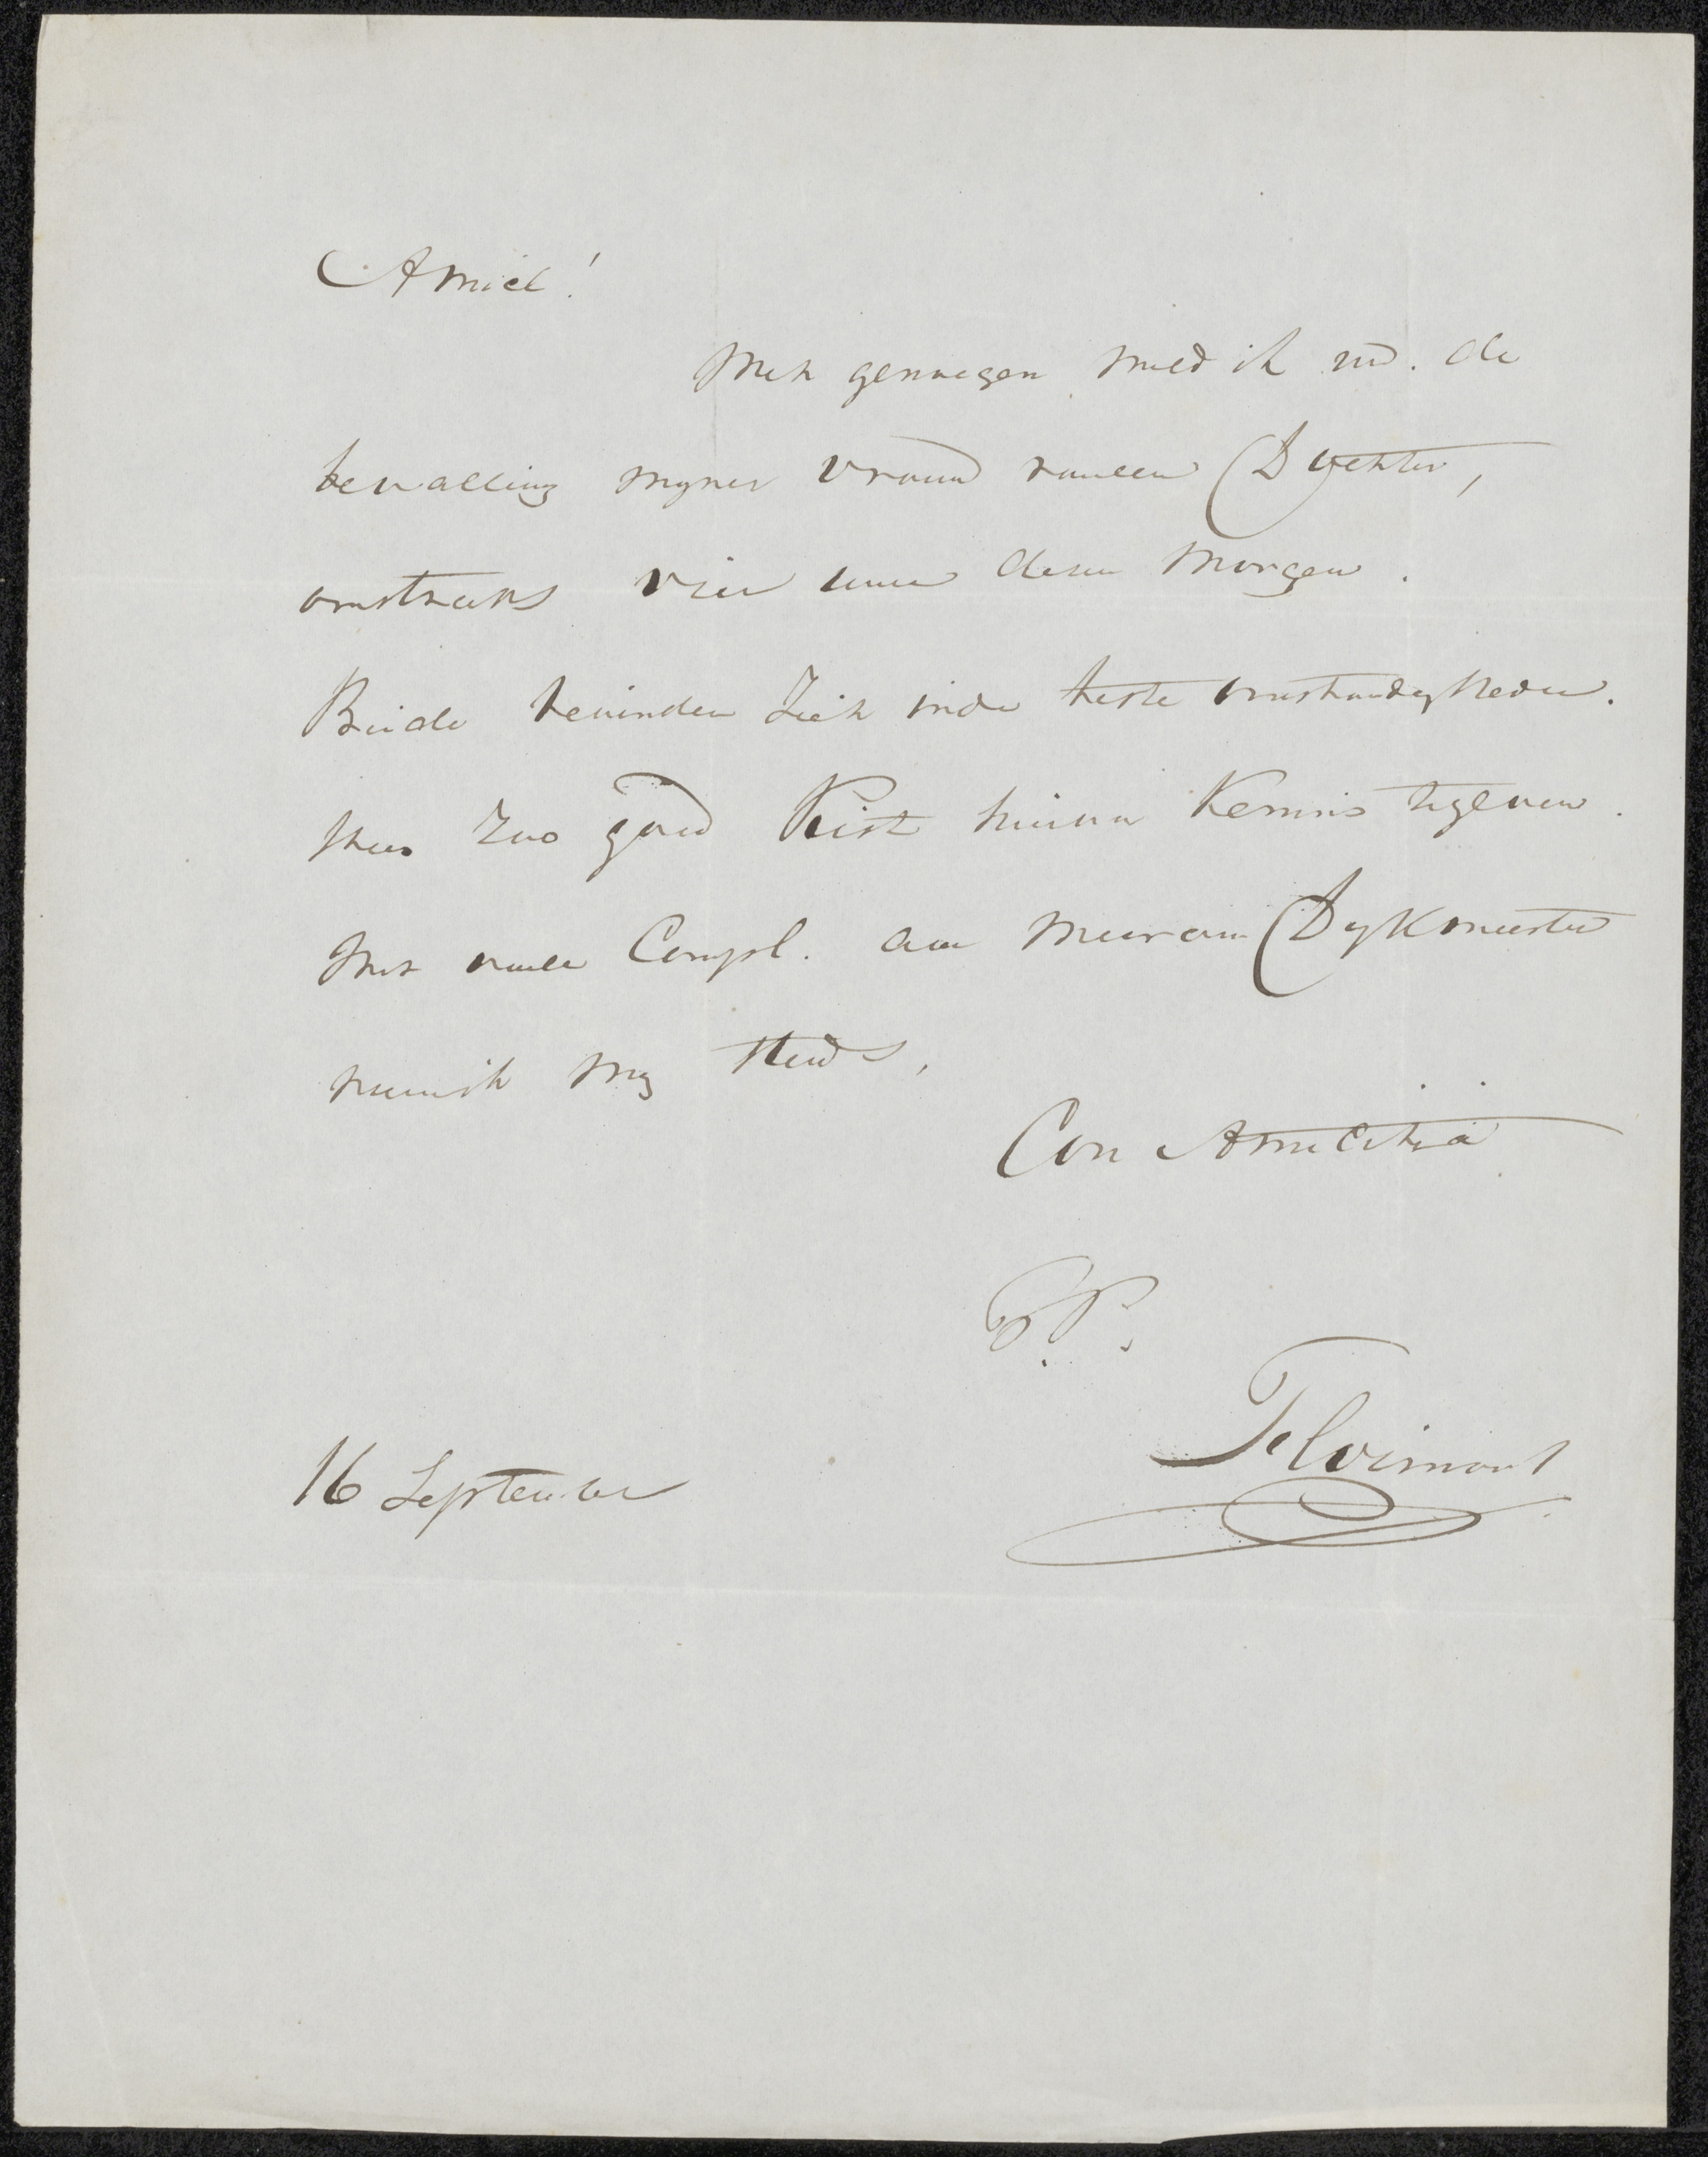 Amice!
Met genoegen meld ik UEd. de
bevalling myner vrouw van een Dochter,
omstreeks vier uure dezen morgen.
Beide bevinden zich in de beste omstandigheden.
Wees zoo goed Kist hiervan kennis te geven.
Met veele Compl. aan Mevrouw Dykmeester
noem ik my steeds,
Con Amicitia
T. P.
16 September